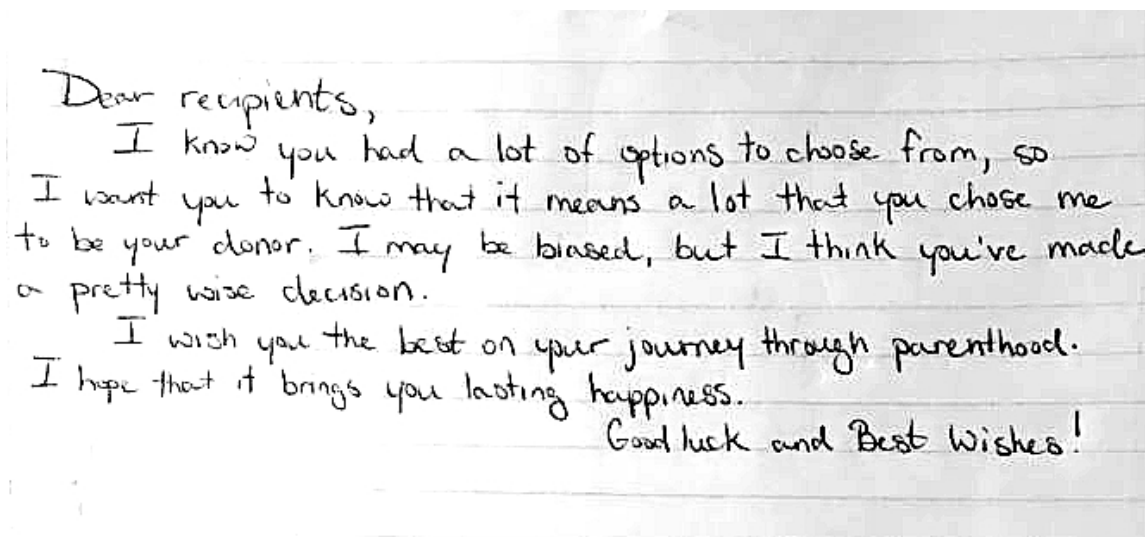 Dear recipients,
I know you had a lot of options to choose from, so
I want you to know that it means a lot that you chose me
to be your donor. I may be biased, but I think you've made
a pretty wise decision.
I wish you the best on your journey through parenthood.
I hope that it brings you lasting happiness.
Good luck and Best Wishes!